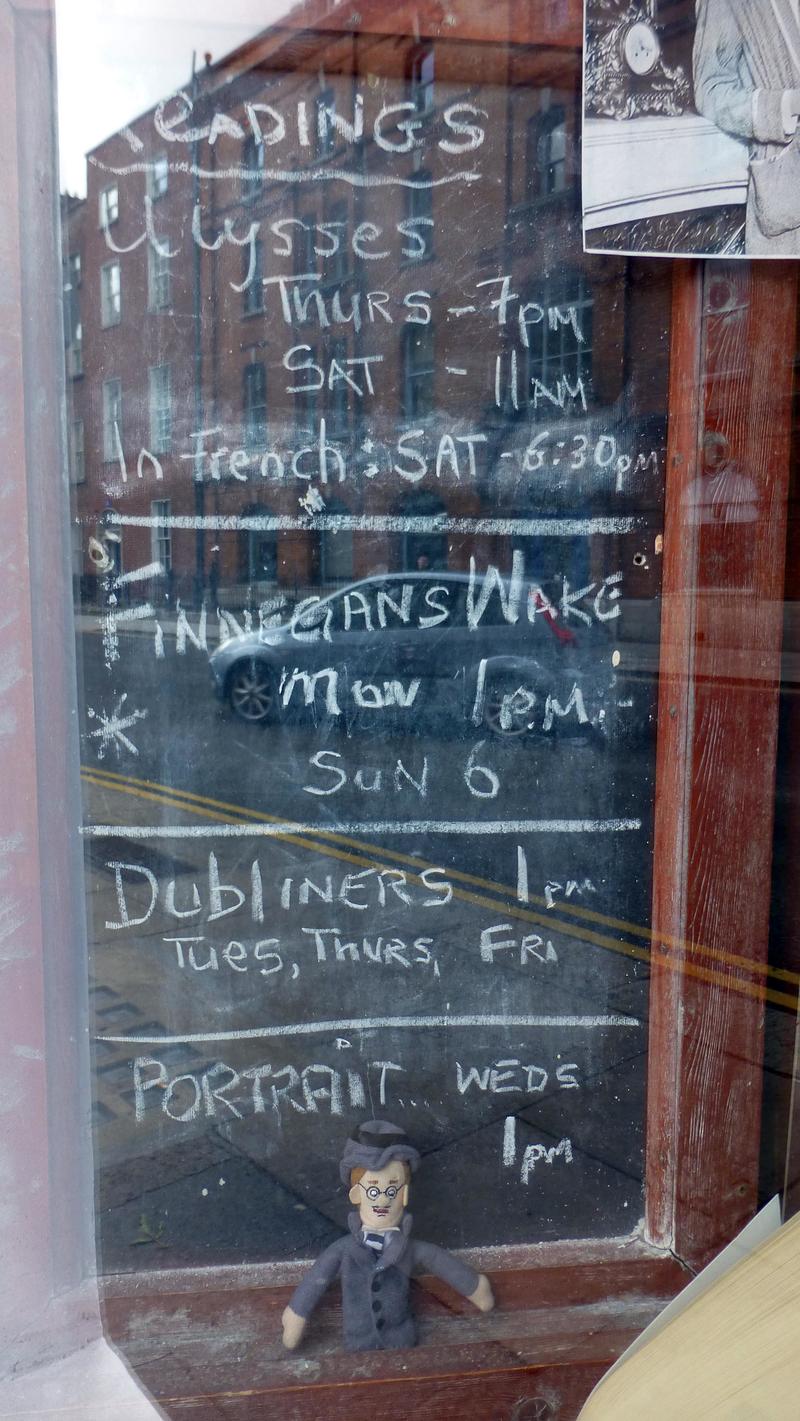 READINGS
Ulysses
THURS - 7pm
SAT - 11AM
In French: SAT - 6:30pm
FiNNEGANS WAKE
Mon 1P.M. -
* SuN 6
DubliNERS 1pm
Tues, Thurs, FRi
PORTRAiT... WEDS
1pm